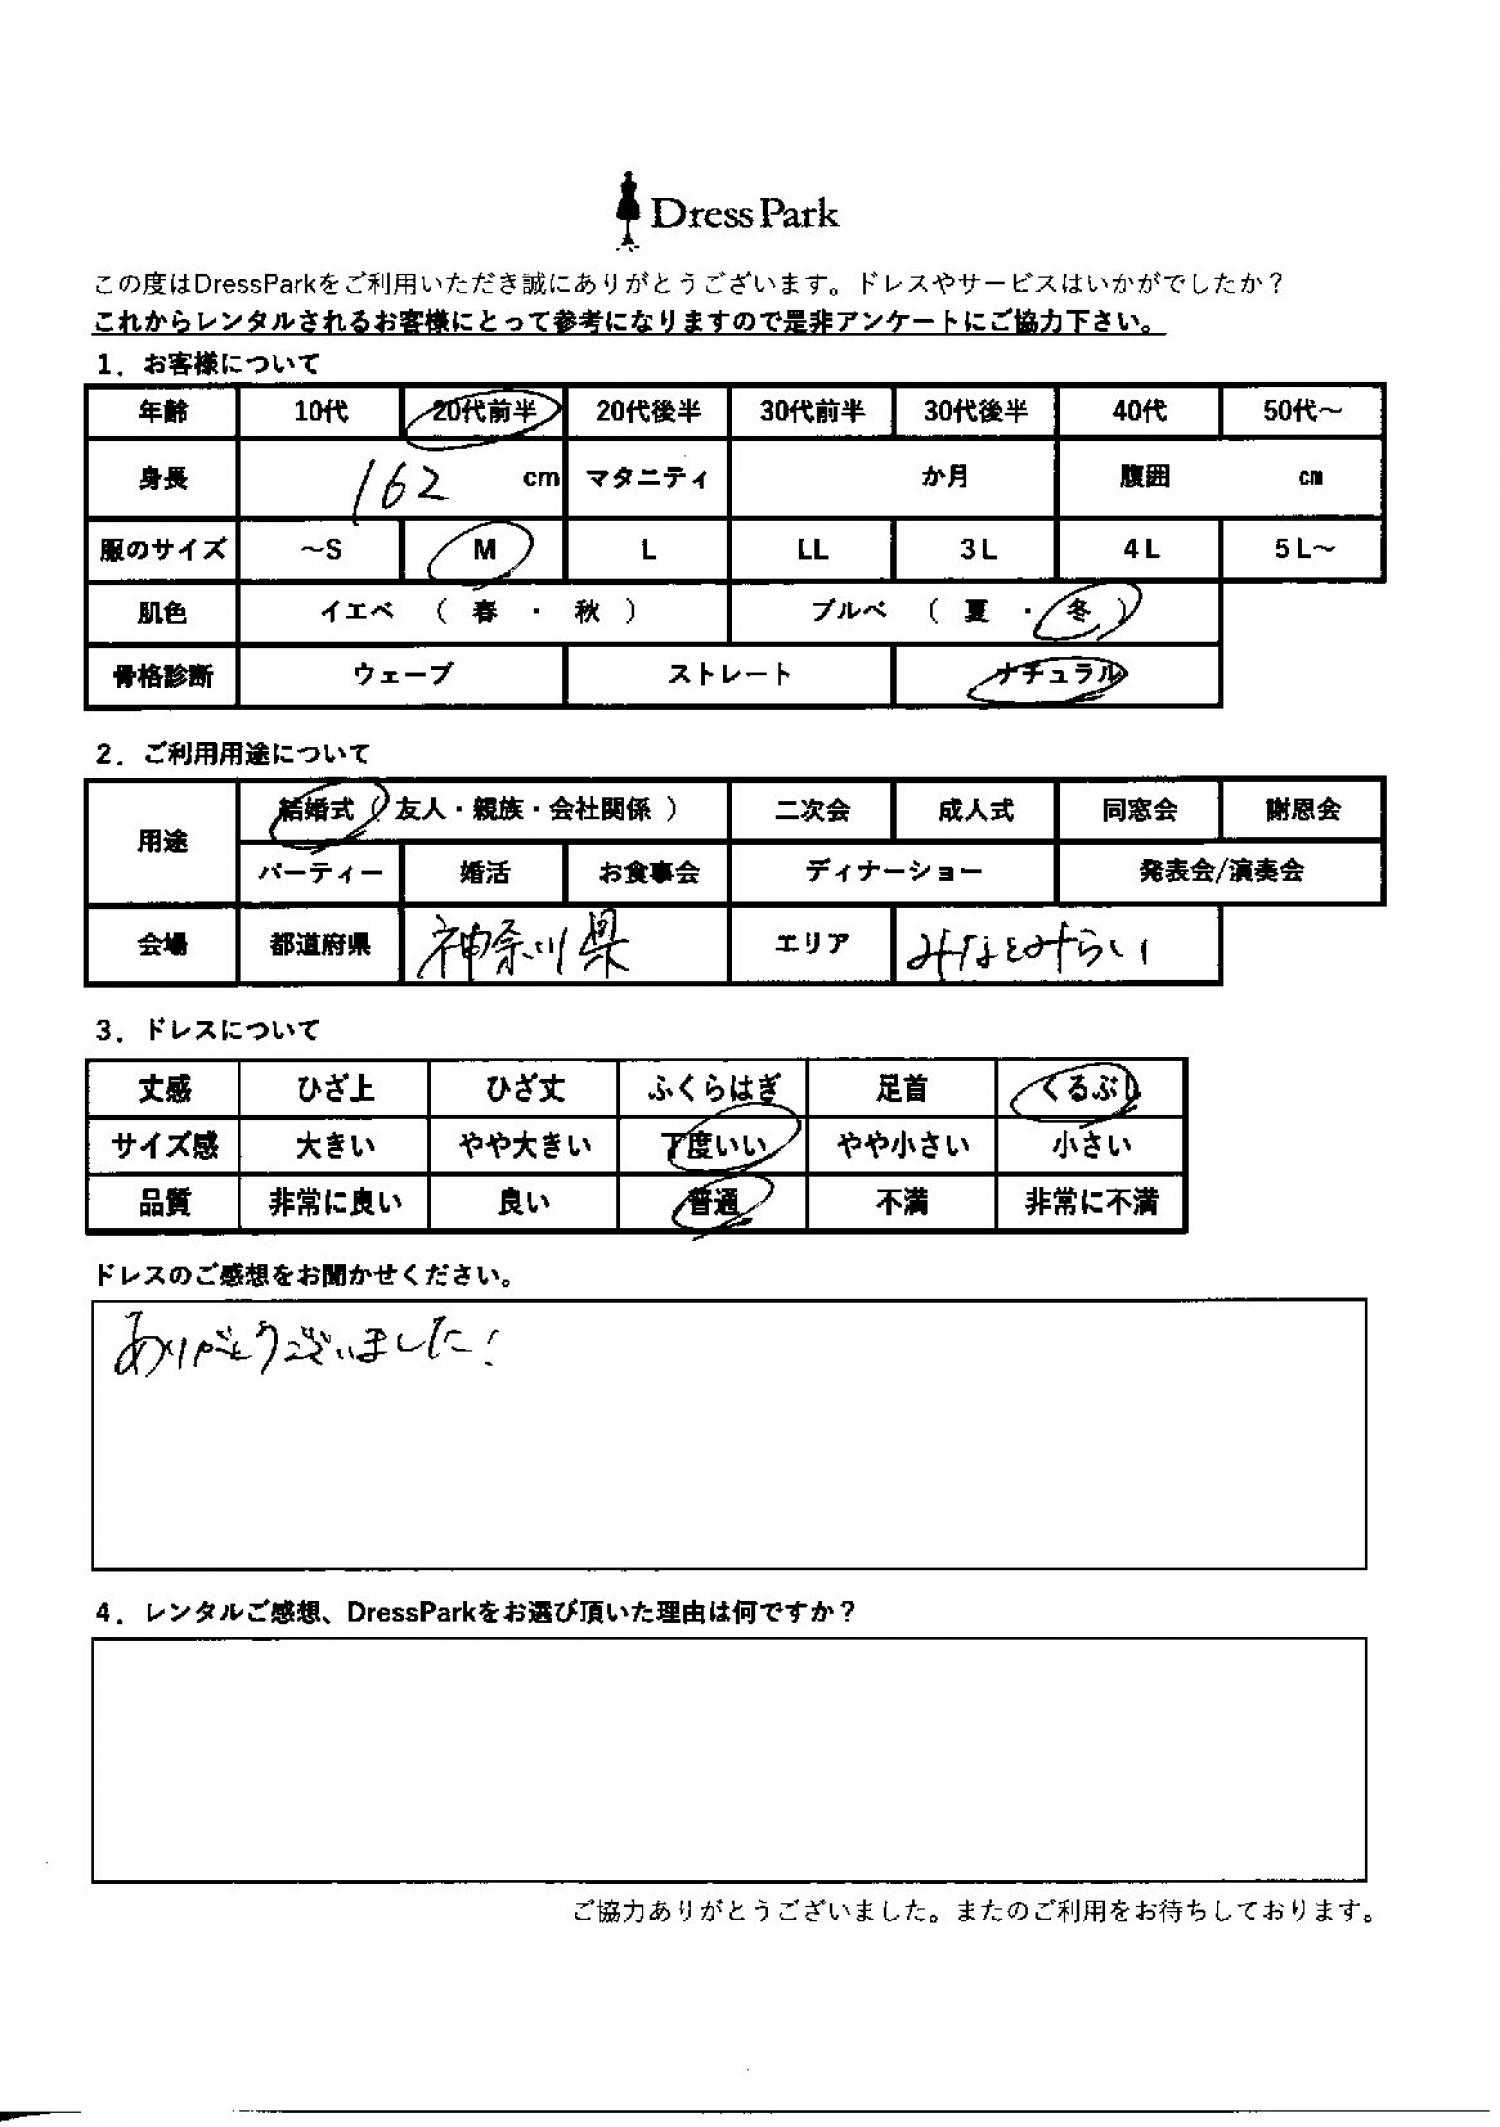 DressPark
この度はDressParkをご利用いただき誠にありがとうございます。ドレスやサービスはいかがでしたか？
これからレンタルされるお客様にとって参考になりますので是非アンケートにご協力下さい。
1．お客様について
年齢 10代 20代前半 20代後半 30代前半 30代後半 40代 50代～
身長 162 cm マタニティ か月 腹囲 cm
服のサイズ ～S M L LL 3L 4L 5L～
肌色 イエベ （ 春 ・ 秋 ） ブルベ （ 夏 ・ 冬 ）
骨格診断 ウェーブ ストレート ナチュラル
2．ご利用用途について
用途 結婚式（ 友人・親族・会社関係 ） 二次会 成人式 同窓会 謝恩会
パーティー 婚活 お食事会 ディナーショー 発表会/演奏会
会場 都道府県 神奈川県 エリア みなとみらい
3．ドレスについて
丈感 ひざ上 ひざ丈 ふくらはぎ 足首 くるぶし
サイズ感 大きい やや大きい 丁度いい やや小さい 小さい
品質 非常に良い 良い 普通 不満 非常に不満
ドレスのご感想をお聞かせください。
ありがとうございました！
4．レンタルご感想、DressParkをお選び頂いた理由は何ですか？
ご協力ありがとうございました。またのご利用をお待ちしております。